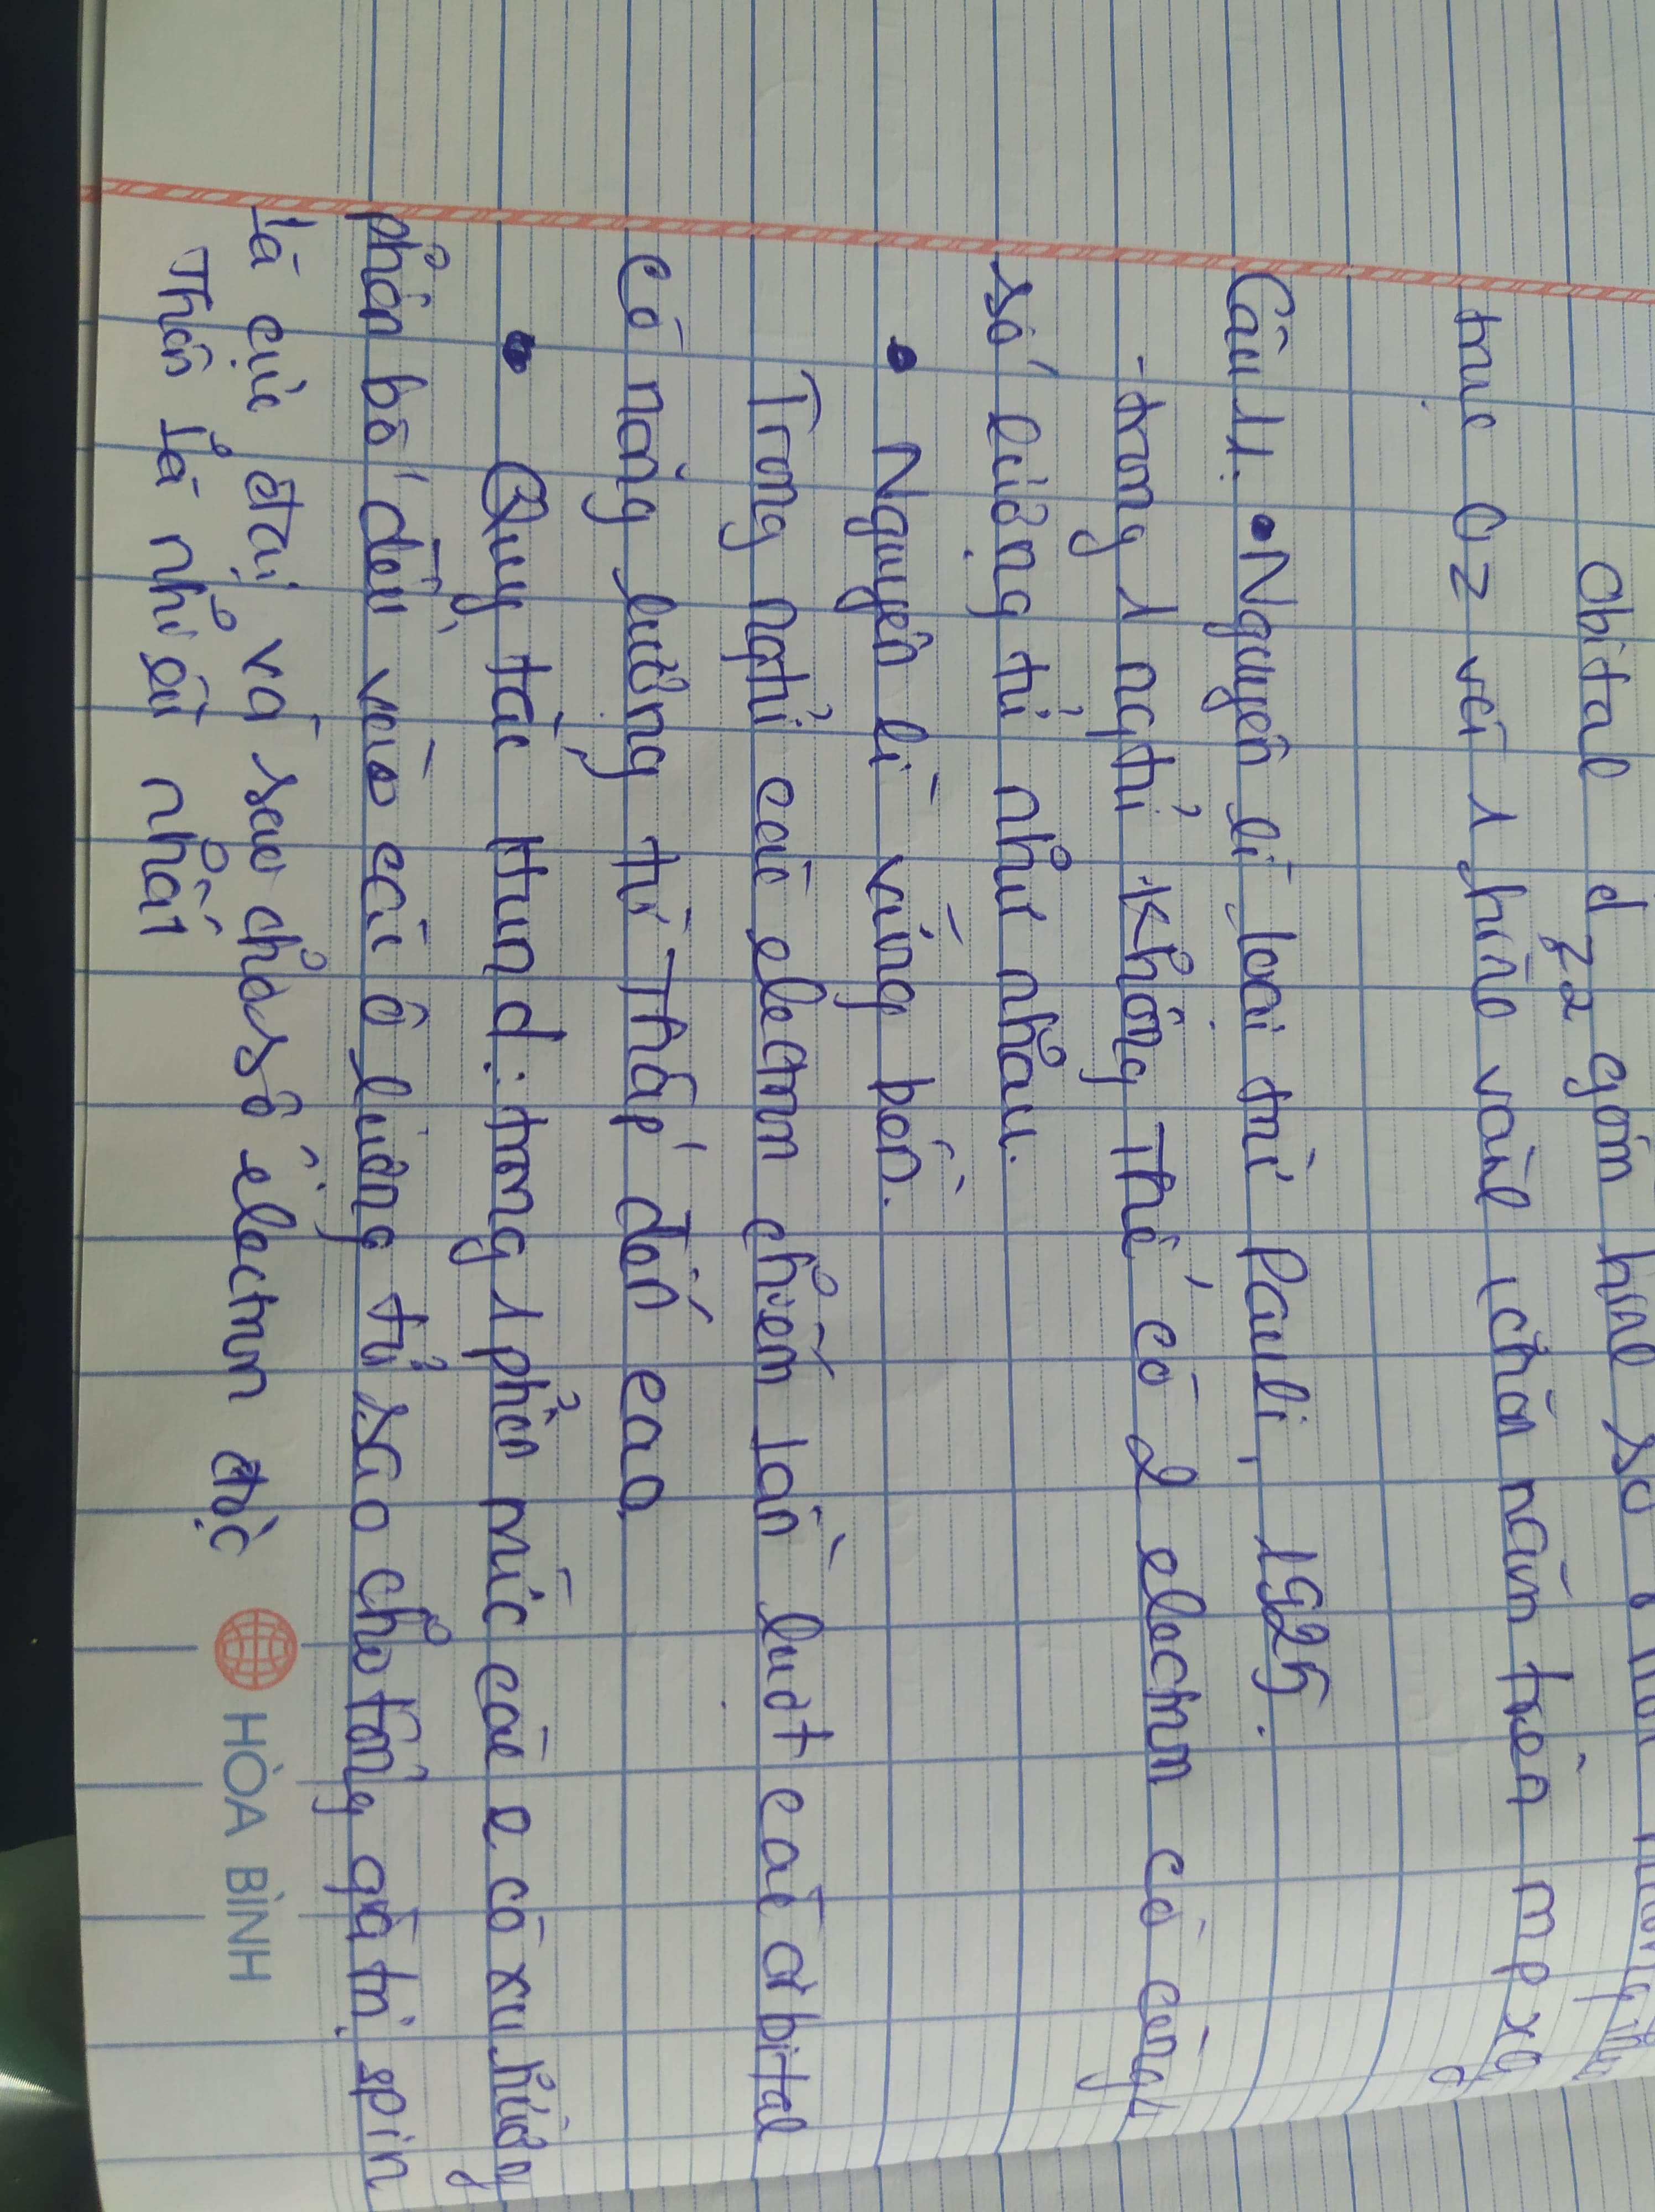 Obital d z2 gồm hình số 8
trục Oz với 1 hình vành (chăn nằm trên mp xy
Câu 11: • Nguyên lí loại trừ Pauli, 1925.
- trong 1 ngtử không thể có 2 electron có cùng 4
số lượng tử như nhau.
• Nguyên lí vững bền.
Trong ngtử các electron chiếm lần lượt các orbital
có năng lượng từ thấp đến cao
• Quy tắc Hund: trong 1 phân mức các e có xu hướng
phân bố đều vào các ô lượng tử sao cho tổng giá trị spin
là cực đại và sao cho số electron độc
thân là nhiều nhất
HÒA BÌNH